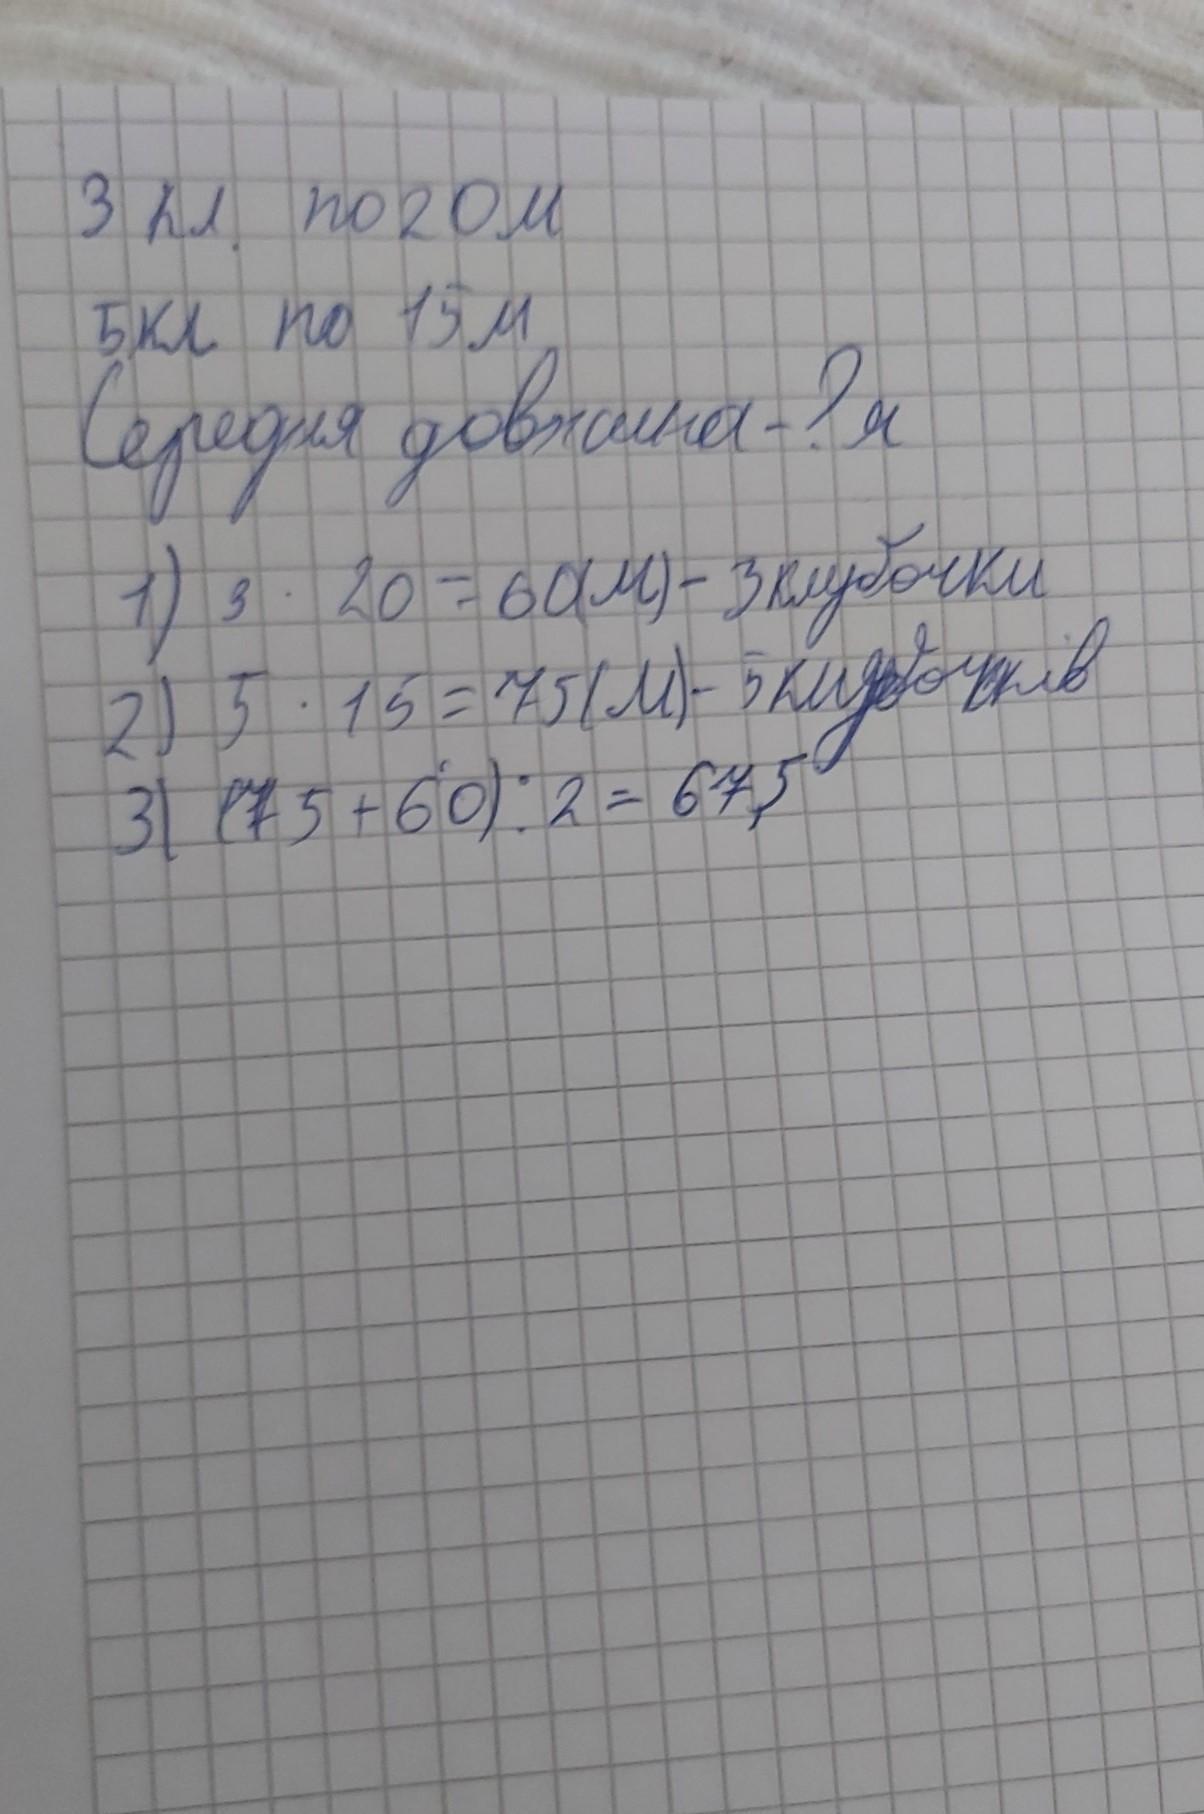 3 кл. по 20 м
5 кл по 15 м
Середня довжина - ? м
1) 3 · 20 = 60(м) - 3 клубочки
2) 5 · 15 = 75(м) - 5 клубочків
3) (75 + 60) : 2 = 67,5